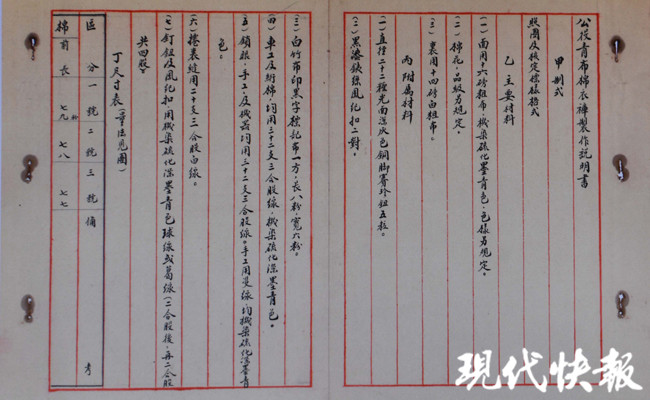 公役青布棉衣褲製作說明書
甲 制式
照圖及核定標樣格式
乙 主要材料
(一) 面用十六磅粗布，機染硫化墨青色，色樣另規定。
(二) 棉花，品級另規定。
(三) 裏用十四磅白粗布。
丙 附屬材料
(一) 直徑二十二種光面深灰色銅脚賽珍鈕五粒。
(二) 黑漆鉄絲風化扣二對。
(三) 白竹布印黑字標記布一方，長八粉，寬六粉。
(四) 車工及絎棉，均用三十二支三合股線，機染硫化深墨青色。
(五) 鎖眼，手工及機器均用三十二支三合股線。手工用蔓線，均機染硫化深墨青
色。
(六) 捲裏縫用二十支三合股白線。
(七) 釘鈕及風化扣，用機染硫化深墨青色球線或蔓線(二合股後，再二合股
共四股)。
丁 尺寸表 (量法見圖)
區 分 一號 二號 三號 備 考
棉 前長 七九 七八 七七
現代快報